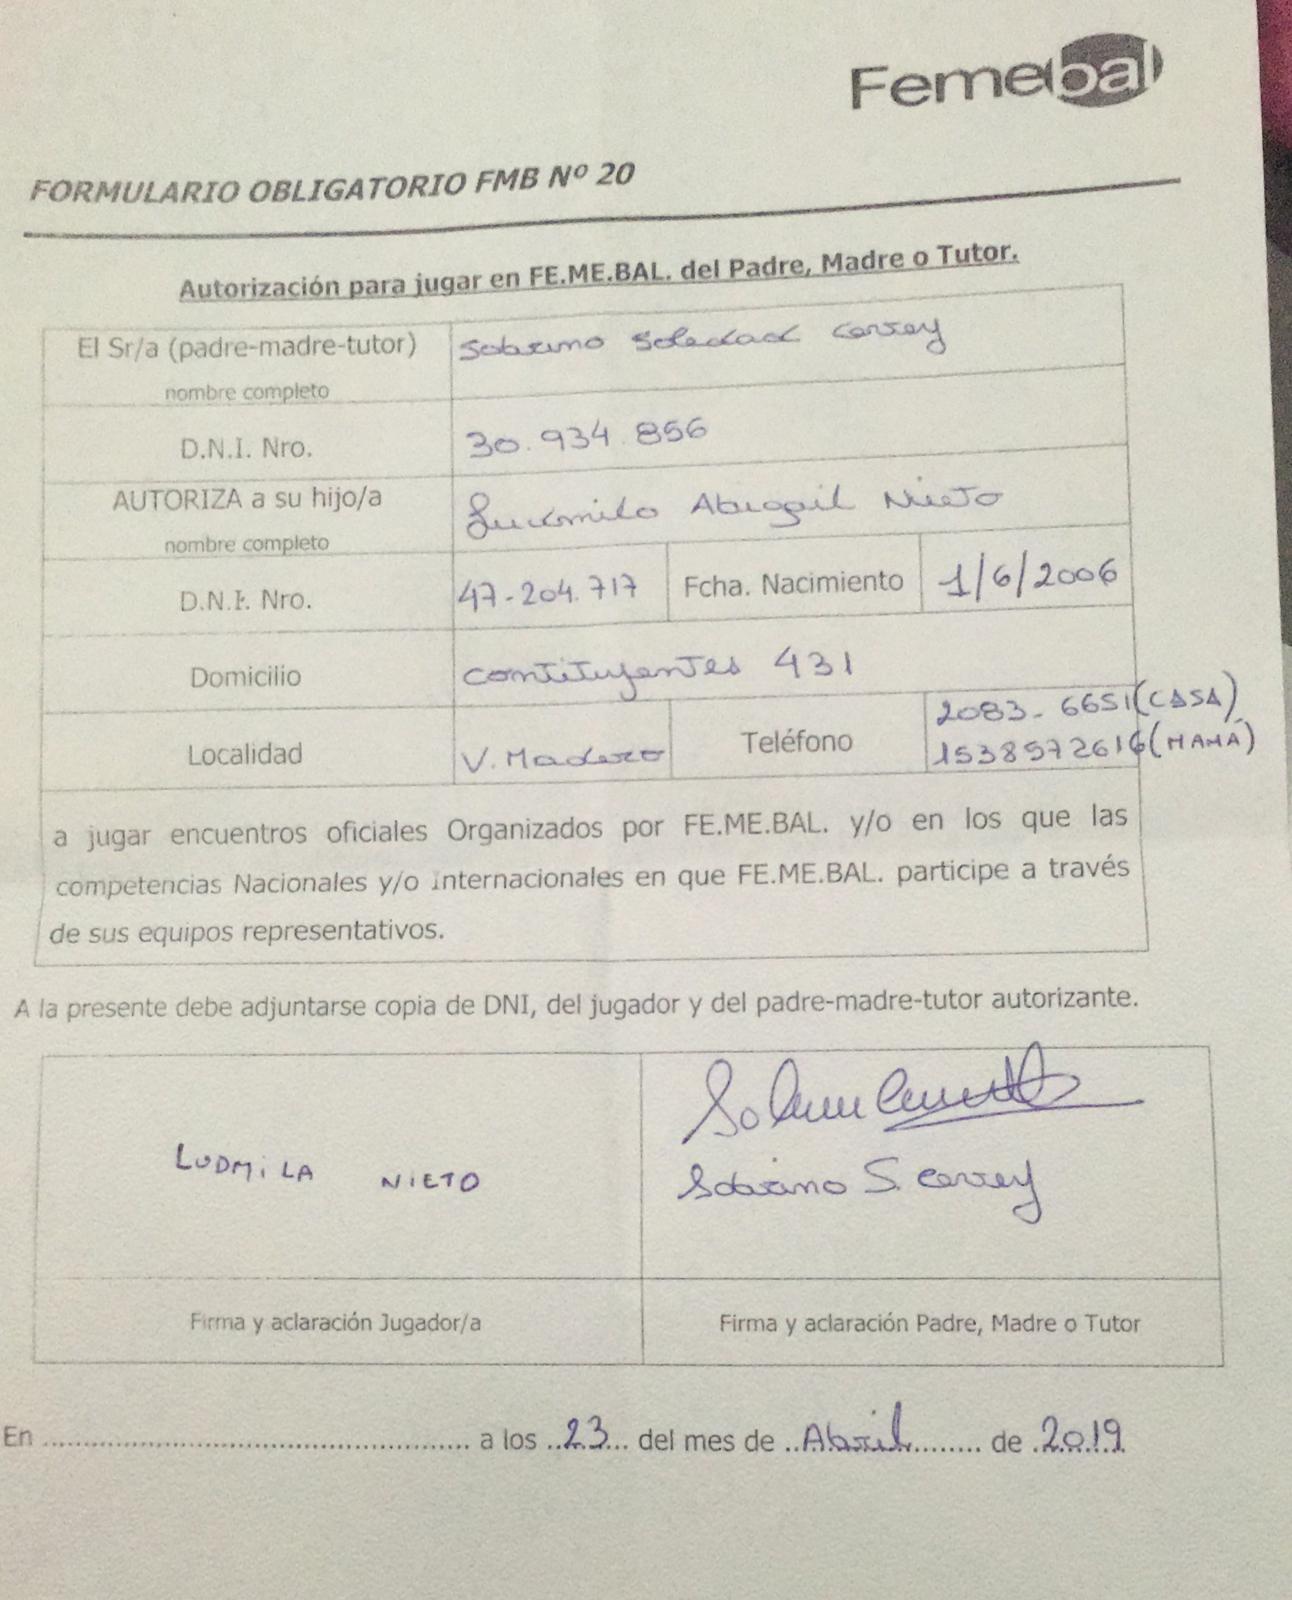 Femebal
FORMULARIO OBLIGATORIO FMB Nº 20
Autorización para jugar en FE.ME.BAL. del Padre, Madre o Tutor.
El Sr/a (padre-madre-tutor) Sabrina Soledad Correy
nombre completo
D.N.I. Nro. 30.934.856
AUTORIZA a su hijo/a Ludmila Abigail Nieto
nombre completo
D.N.I. Nro. 47-204.717 Fcha. Nacimiento 1/6/2006
Domicilio contituyentes 431
2083-6651 (CASA)
Localidad V. Madero Teléfono 1538572616 (MAMÁ)
a jugar encuentros oficiales Organizados por FE.ME.BAL. y/o en los que las
competencias Nacionales y/o Internacionales en que FE.ME.BAL. participe a través
de sus equipos representativos.
A la presente debe adjuntarse copia de DNI, del jugador y del padre-madre-tutor autorizante.
LUDMILA NIETO
Sabrina S.
Firma y aclaración Jugador/a Firma y aclaración Padre, Madre o Tutor
En ................ a los 23 del mes de Abril de 2019